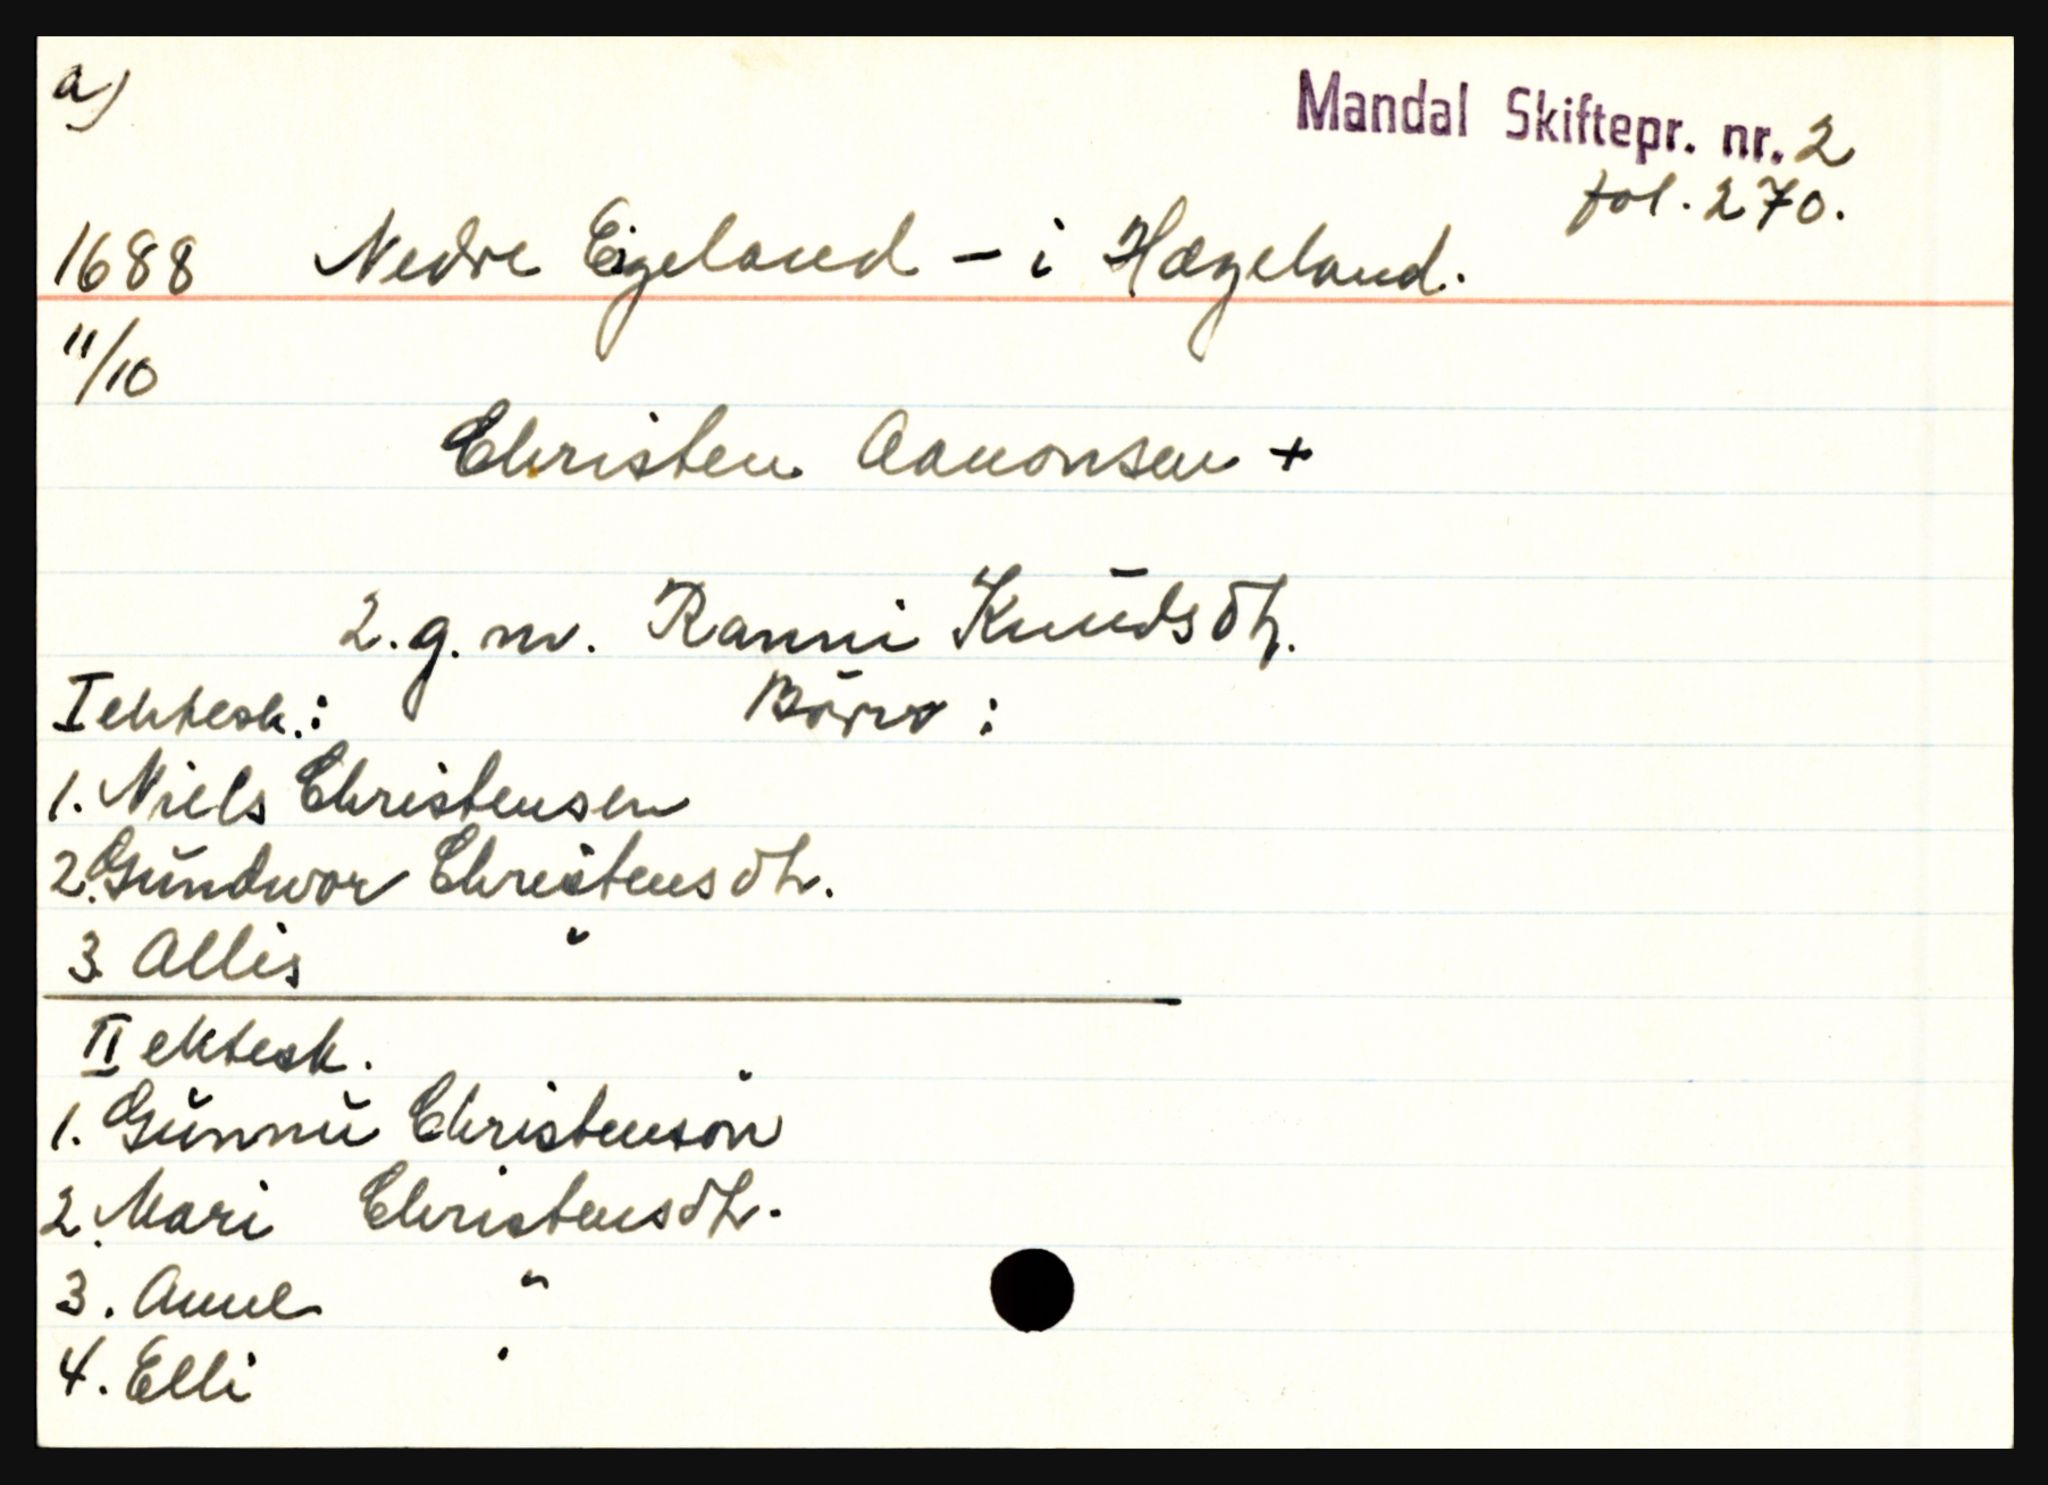 a)
Mandal Skiftepr. nr. 2
fol. 270.
1688 Nedre Eigeland - i Hægeland.
11/10
Christen Aanonsen +
2. g. m. Ranni Knudsdtr.
I ektesk.: Börn :
1. Niels Christensen
2. Gundwor Christensdtr.
3. Allis "
II ektesk.
1. Gunnu Christensön
2. Mari Christensdtr.
3. Anne "
4. Elli "